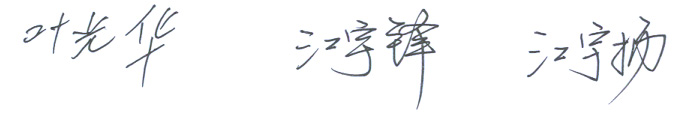 叶光华 江宇锋 江宇扬